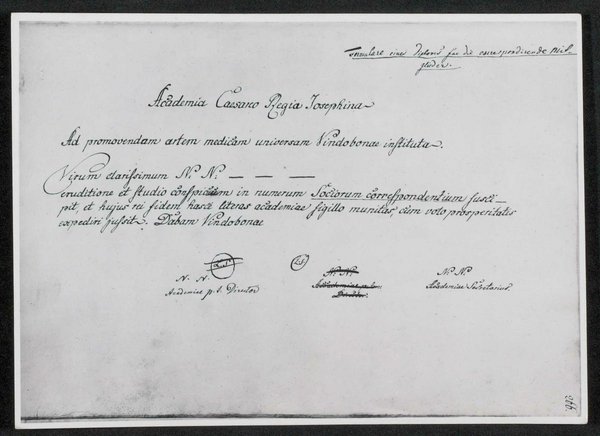 Formulare eines Diploms für die correspondirende Mit-
glieder.
Academia Caesareo Regia Josephina
Ad promovendam artem medicam universam Vindobonae instituta.
Virum clarissimum N. N. — — —
eruditione et studio conspicuum in numerum Sociorum correspondentium susci-
pit, et hujus rei fidem hasce literas academiae sigillo munitas cum voto prosperitatis
expediri jussit. Dabam Vindobonae
L.S. L.S.
N. N. N. N. N. N.
Academiae p.t. Director Academiae p.t. Academiae Secretarius
Director.